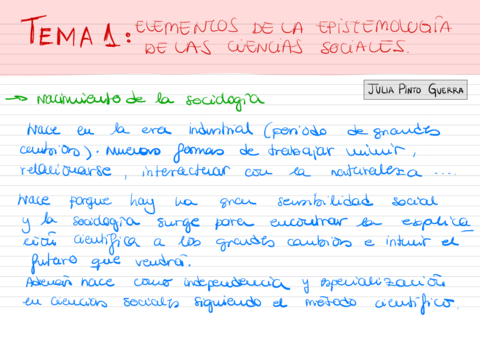 TEMA 1: ELEMENTOS DE LA EPISTEMOLOGÍA
DE LAS CIENCIAS SOCIALES.
JÚLIA PINTO GUERRA
→ Nacimiento de la sociología
Nace en la era industrial (periodo de grandes
cambios). Nuevas formas de trabajar, vivir,
relacionarse, interactuar con la naturaleza ....
Nace porque hay una gran sensibilidad social
y la sociología surge para encontrar la explica
ción científica a los grandes cambios e intuir el
futuro que vendrá.
Además nace como independencia y especialización
en ciencias sociales siguiendo el método científico.